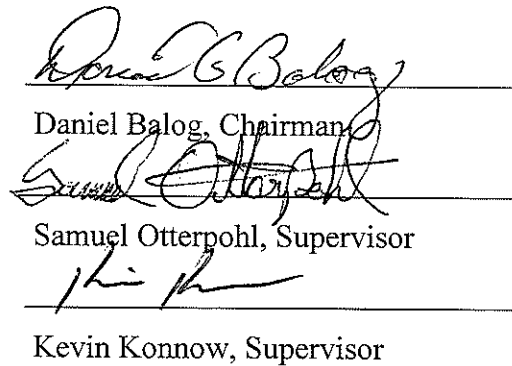 Daniel G Balog
Daniel Balog, Chairman
Samuel Otterpohl
Samuel Otterpohl, Supervisor
Kevin Konnow, Supervisor